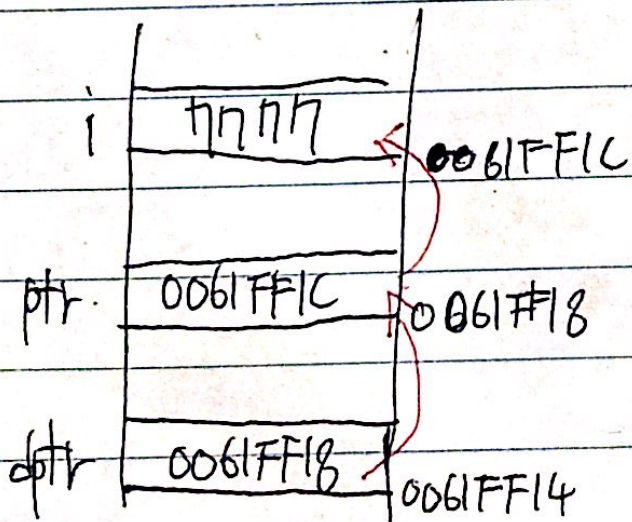 i 7777 0061FF1C
ptr. 0061FF1C 0061FF18
dptr 0061FF18 0061FF14